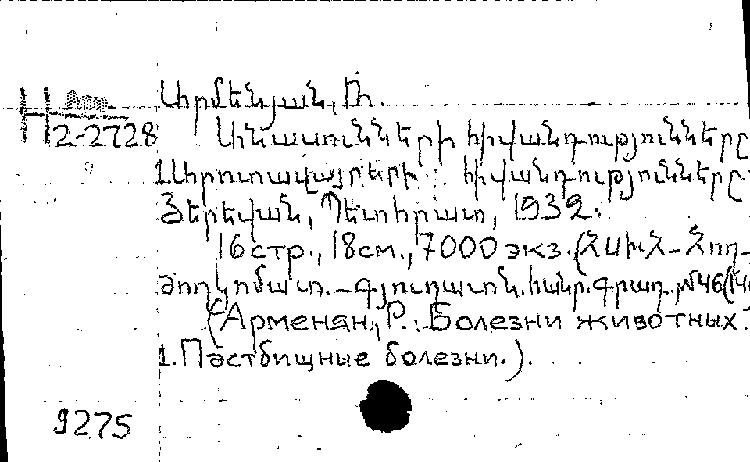 Արմենյան, Ռ.
2-2728 Անասունների հիվանդությունները
1. Արոտավայրերի հիվանդությունները.
Յերեվան, Պետհրատ, 1932.
16 стр., 18 см., 7000 экз. (ՀՍԽՀ - Հող-
ժողկոմատ. - Գյուղատնտ. հանր. գրադ. № 46(
(Арменян, Р. Болезни животных.
1. Пастбищные болезни.).
9275